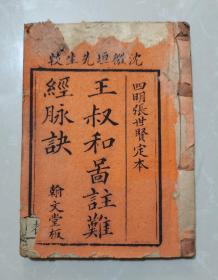 沈微垣先生較
四明張世賢定本
王叔和啚註難
經脉訣
翰文堂板